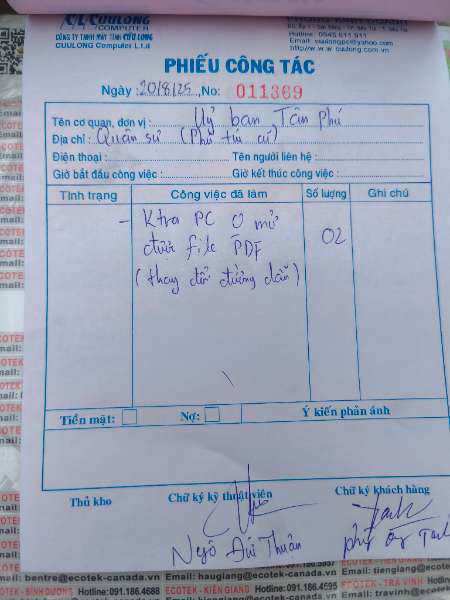 CUULONG
COMPUTER
CÔNG TY TNHH MÁY TÍNH CỬU LONG
CUULONG Computer L.t.d
Hotline: 0945.611.911
Email: cuulongpc@yahoo.com
http://www.cuulong.com.vn
PHIẾU CÔNG TÁC
Ngày: 20/8/25 No: 011369
Tên cơ quan, đơn vị: Uỷ ban Tân Phú
Địa chỉ: Quân sự (Phú
Điện thoại: Tên người liên hệ:
Giờ bắt đầu công việc: Giờ kết thúc công việc:
Tình trạng Công việc đã làm Số lượng Ghi chú
- Ktra PC 0 mở 02
được file PDF
(thay đổi đường dẫn)
Tiền mặt: Nợ: Ý kiến phản ánh
Thủ kho Chữ ký kỹ thuật viên Chữ ký khách hàng
Ngô Đức Thuân
Email: bentre@ecotek-canada.vn
Email: haugiang@ecotek-canada.vn
Email: tiengiang@e
ECOTEK-BÌNH DƯƠNG Hotline: 091.186.4688
ECOTEK-KIÊN GIANG Hotline: 091.186.4595
ECOTEK-TRÀ VINH Hotline: